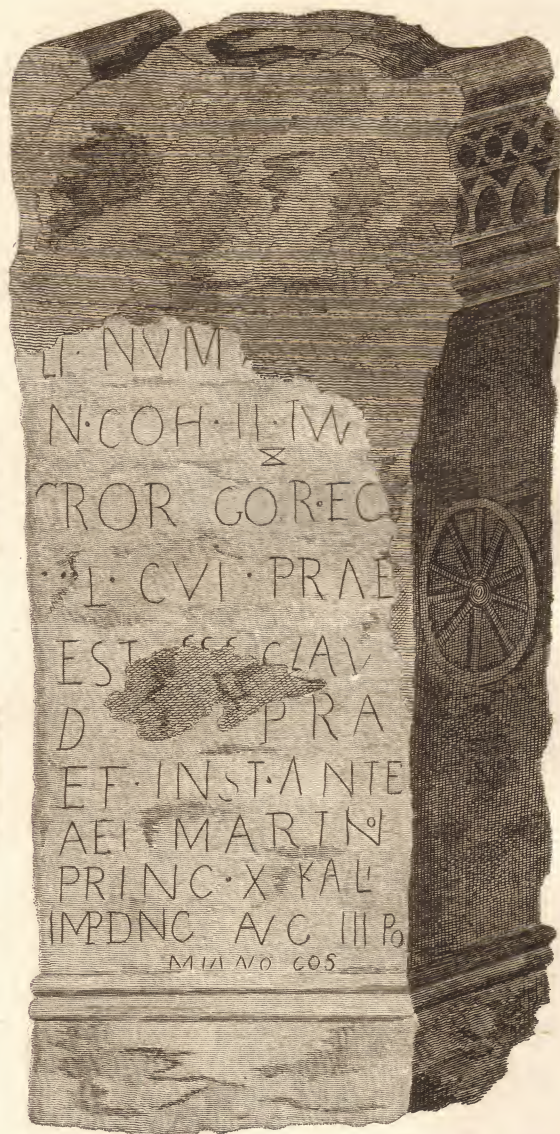 LI · NVM
N · COH · II · TVN
CROR GOR · EC
L · CVI · PRAE
EST CLAV
D PRA
EF · INST · ANTE
AEI MARINO
PRINC · X · KAL
IMPDNC AVC III PO
MIANO COS